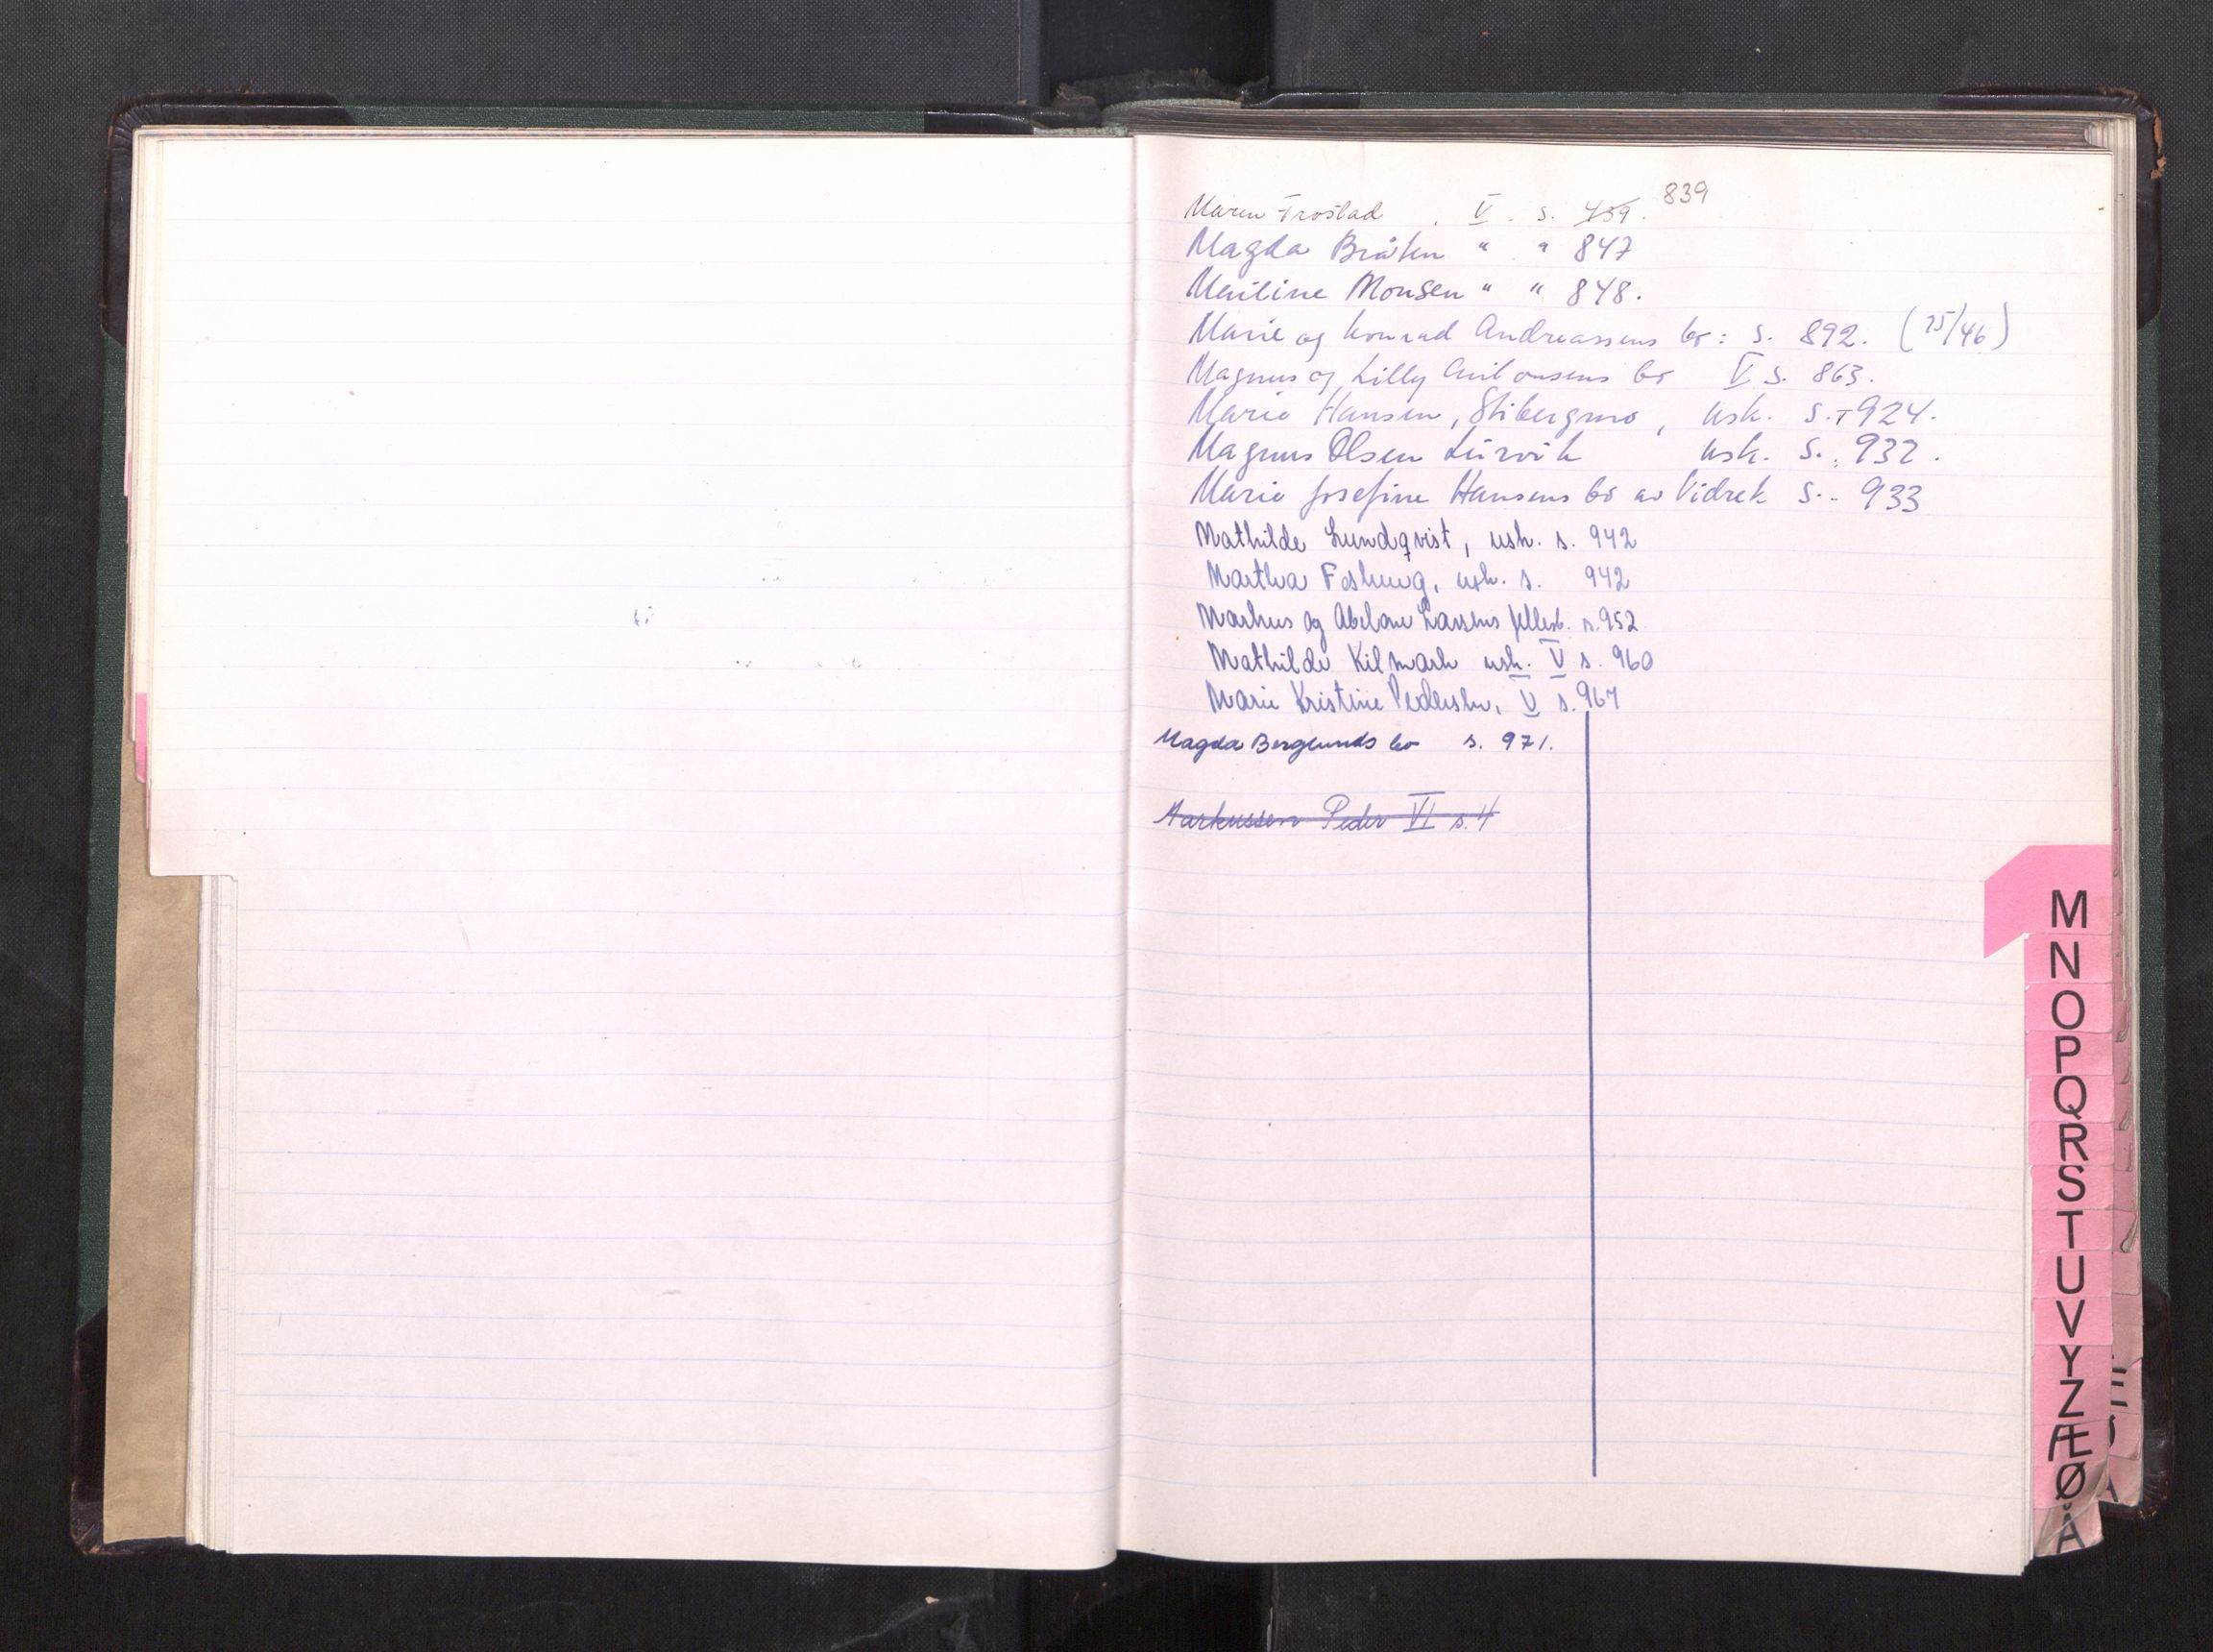 Maren Trostad . V . s. 459. 839
Magda Bråten " " 847
Monsen " " 848.
Marie og Konrad Andreassens bo: s. 892. (75/46)
Magnus og Lilly bo V s. 863.
Marie Hansen, Stibergmo, usk. s. 924.
Magnus Olsen usk. s. 932.
Marie Josefine Hansens bo av Vidrek s. 933
Mathilde Lundqvist, usk. s. 942
Martha usk. s. 942
Markus og Abelone Larsens fellesb. s. 952
Mathilde Kilmark usk. V s. 960
Marie Kristine Pedersen, V s. 967
Magda Berglunds bo s. 971.
Markussen Peder VI s. 4
M
N
O
P
Q
R
S
T
U
V
Y
Z
Æ
Ø
Å